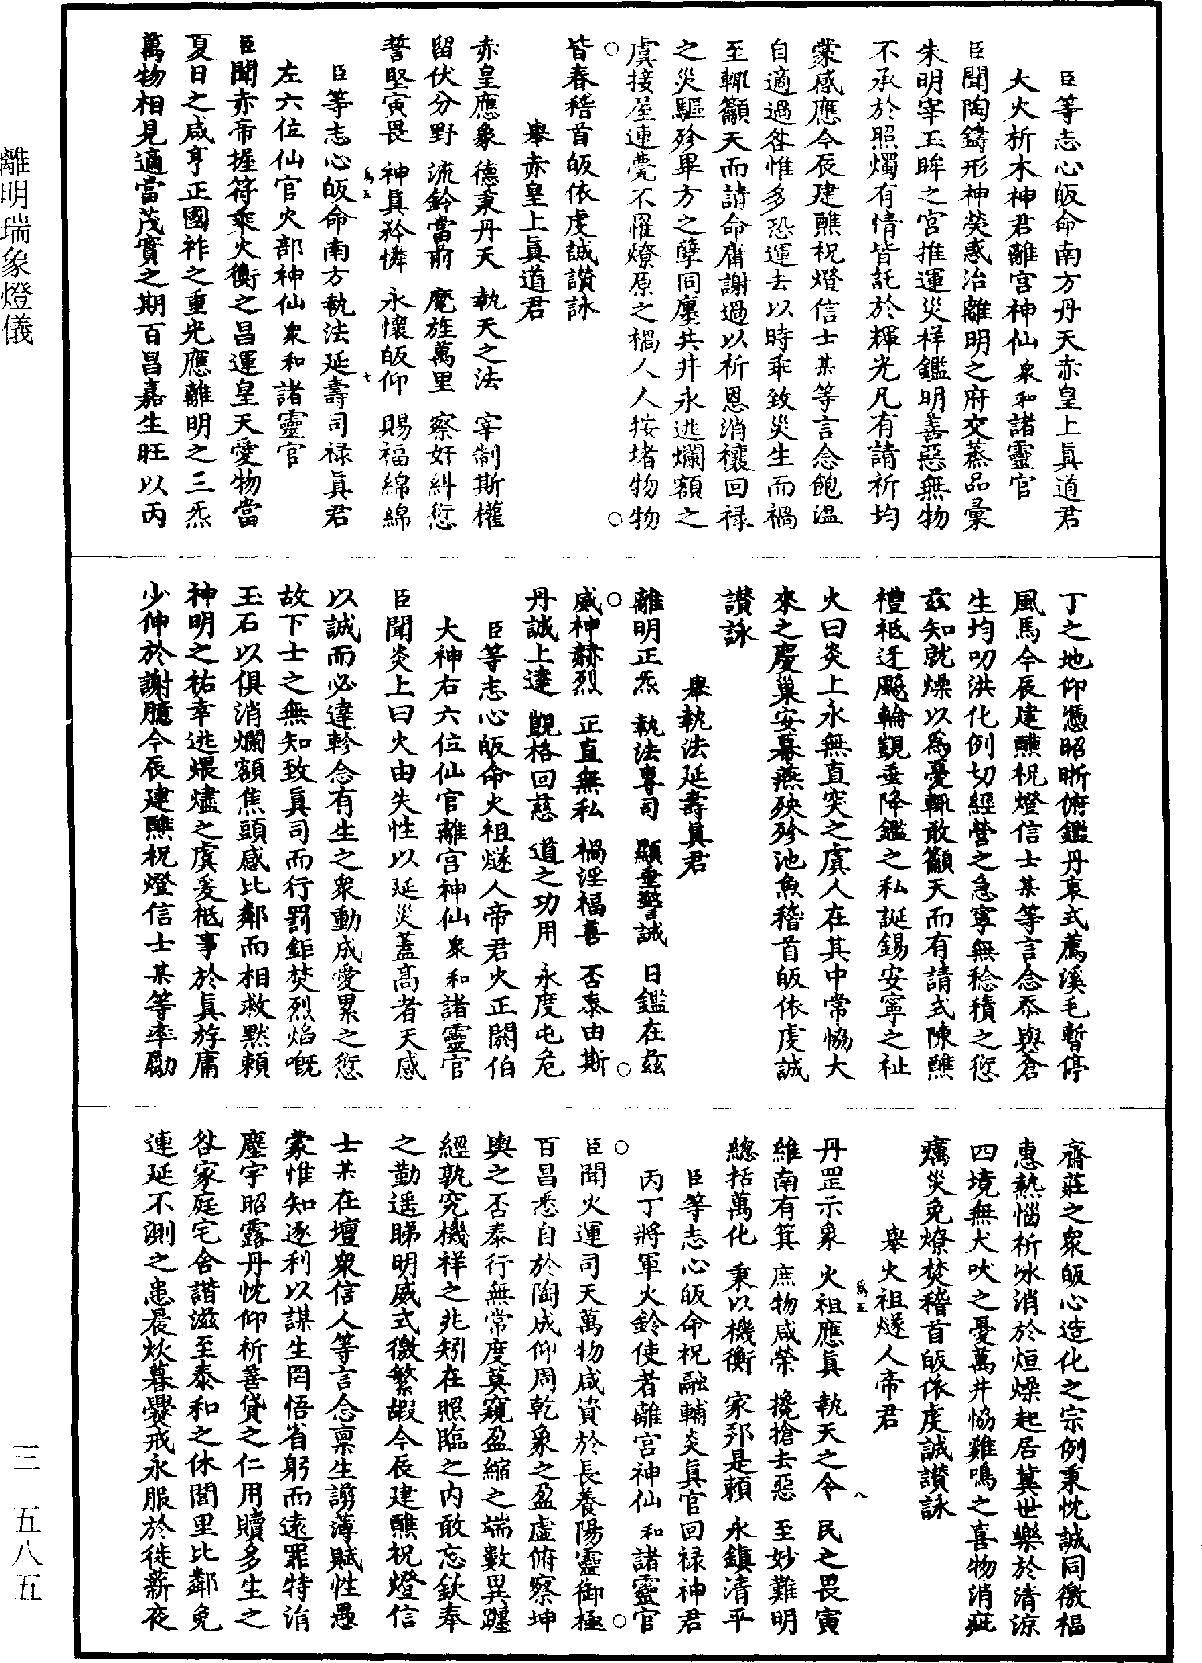 離明瑞象燈儀
臣等志心皈命南方丹天赤皇上眞道君
大火析木神君離宮神仙衆和諸靈官
臣聞陶鑄形神熒惑治離明之府交蒸品彙
朱明宰玉眸之宮推運災祥鑑明善惡無物
不承於照燭有情皆託於輝光凡有請祈均
蒙感應今辰建醮祝燈信士某等言念飽溫
自適過咎惟多恐運去以時乖致災生而禍
至輒籲天而請命庸謝過以祈恩消禳回祿
之災驅殄畢方之孽同廛共井永逃爛額之
虞接屋連甍不罹燎原之禍人人按堵物物
皆春稽首皈依虔誠讚詠
舉赤皇上眞道君
赤皇應象 德秉丹天 執天之法 宰制斯權
留伏分野 流鈴當前 麾旌萬里 察奸糾愆
誓堅寅畏 神眞矜憐 永懷皈仰 賜福綿綿
臣等志心皈命南方執法延壽司祿眞君
左六位仙官火部神仙衆和諸靈官
臣聞赤帝握符乘火衡之昌運皇天愛物當
夏日之咸亨正國祚之重光應離明之三炁
萬物相見適當茂實之期百昌嘉生旺以丙
丁之地仰憑昭晰俯鑑丹衷式薦溪毛暫停
風馬今辰建醮祝燈信士某等言念忝與倉
生均叨洪化例切經營之急寧無稔積之愆
茲知就燥以爲憂輒敢籲天而有請式陳醮
禮祗迓飈輪覬垂降鑑之私誕錫安寧之祉
火曰炎上永無直突之虞人在其中常恊大
來之慶巢安幕燕殃殄池魚稽首皈依虔誠
讚詠
舉執法延壽眞君
離明正炁 執法專司 顯垂警誡 日鑑在茲
威神赫烈 正直無私 禍淫福善 否泰由斯
丹誠上達 覬格回慈 道之功用 永度屯危
臣等志心皈命火祖燧人帝君火正閼伯
大神右六位仙官離宮神仙衆和諸靈官
臣聞炎上曰火由失性以延災蓋高者天感
以誠而必達軫念有生之衆動成愛累之愆
故下士之無知致眞司而行罰鉅焚烈焰嘅
玉石以俱消爛額焦頭感比鄰而相救黙賴
神明之祐幸逃煨燼之虞爰祗事於眞游庸
少伸於謝臆今辰建醮祝燈信士某等率勵
齋莊之衆皈心造化之宗例秉忱誠同徼福
惠熱惱祈冰消於烜燥起居冀世樂於清涼
四境無犬吠之憂萬井恊雞鳴之喜物消疵
癘災免燎焚稽首皈依虔誠讚詠
舉火祖燧人帝君
丹罡示象 火祖應眞 執天之令 民之畏寅
維南有箕 庶物咸榮 攙搶去惡 至妙難明
總括萬化 秉以機衡 家邦是賴 永鎮清平
臣等志心皈命祝融輔炎眞官回祿神君
丙丁將軍火鈴使者離宮神仙和諸靈官
臣聞火運司天萬物咸資於長養陽靈御極
百昌悉自於陶成仰周乾象之盈虛俯察坤
輿之否泰行無常度莫窺盈縮之端數異躔
經孰究機祥之兆矧在照臨之內敢忘欽奉
之勤遥睇明威式徼繁嘏今辰建醮祝燈信
士某在壇衆信人等言念禀生謭薄賦性愚
蒙惟知逐利以謀生罔悟省躬而遠罪特涓
塵宇昭露丹忱仰祈善貸之仁用贖多生之
咎家庭宅舍諧滋至泰和之休閭里比鄰免
連延不測之患晨炊暮爨戒永服於徙薪夜
三 五八五